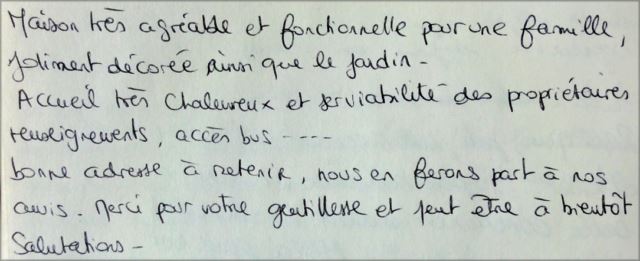 Maison très agréable et fonctionnelle pour une famille,
joliment décorée ainsi que le jardin -
Accueil très chaleureux et serviabilité des propriétaires
renseignements, accès bus ----
bonne adresse à retenir, nous en ferons part à nos
amis. Merci pour votre gentillesse et peut être à bientôt
Salutations -